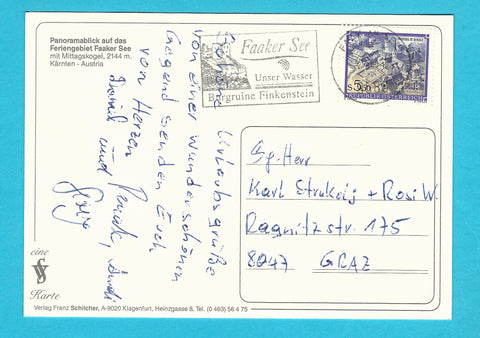 Panoramablick auf das
Feriengebiet Faaker See
mit Mittagskogel, 2144 m
Kärnten - Austria
Faaker See
Unser Wasser
Burgruine Finkenstein
S 5.00
REPUBLIK ÖSTERREICH
Schöne Urlaubsgrüße
von einer wunderschönen
Gegend senden Euch
von Herzen
und
Sg. Herr
Karl Strukelj + Rosi W.
Ragnitzstr. 175
8047 GRAZ
eine
Karte
Verlag Franz Schilcher, A-9020 Klagenfurt, Heinzgasse 8, Tel. (0 463) 56 4 75